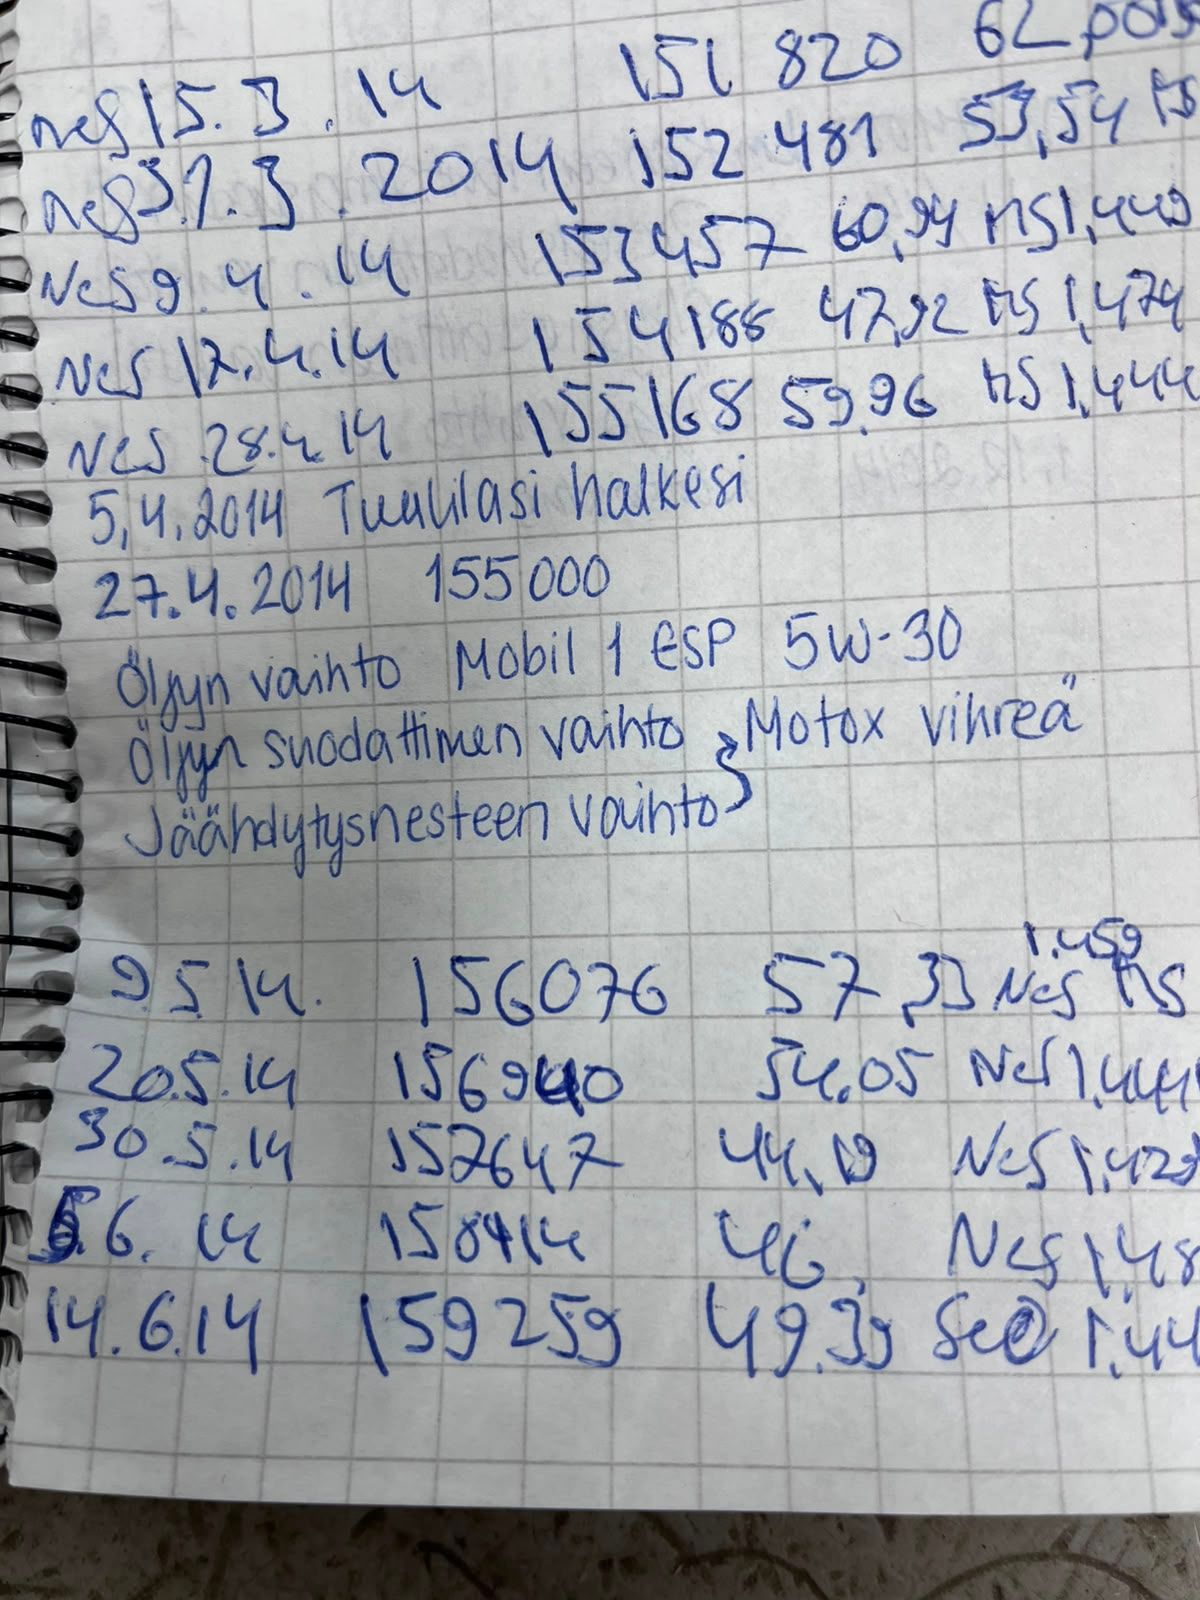 nes 15.3.14 151 820 62,00
nes 31.3.2014 152 481 53,54 ns
Nes 9.4.14 153457 60,94 ns 1,449
Nes 17.4.14 154188 47,92 ns 1,474
Nes 28.4.14 155168 59.96 ns 1,444
5,4.2014 Tuulilasi halkesi
27.4.2014 155000
Öljyn vaihto Mobil 1 ESP 5W-30
Öljyn suodattimen vaihto Motox vihreä
Jäähdytysnesteen vaihto
1.459
9.5.14. 156076 57,33 Nes ns
20.5.14 156940 54.05 Nes 1.441
30.5.14 157647 44,19 Nes 1,429
5.6.14 158414 46, Nes 1,48
14.6.14 159259 49.39 1,44